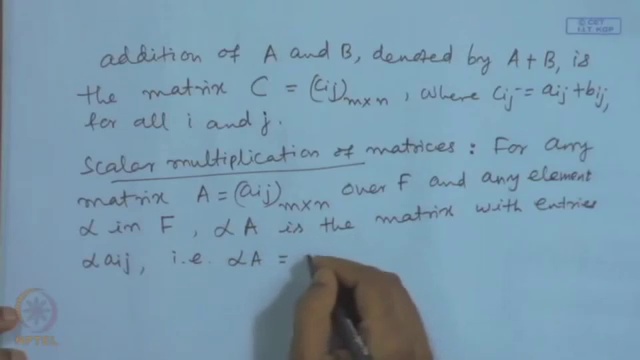 © CET
I.I.T. KGP
addition of A and B, denoted by A+B, is
the matrix C = (cij)m×n, where cij = aij + bij,
for all i and j.
Scalar multiplication of matrices : For any
matrix A = (aij)m×n over F and any element
α in F, αA is the matrix with entries
αaij, i.e. αA =
NPTEL